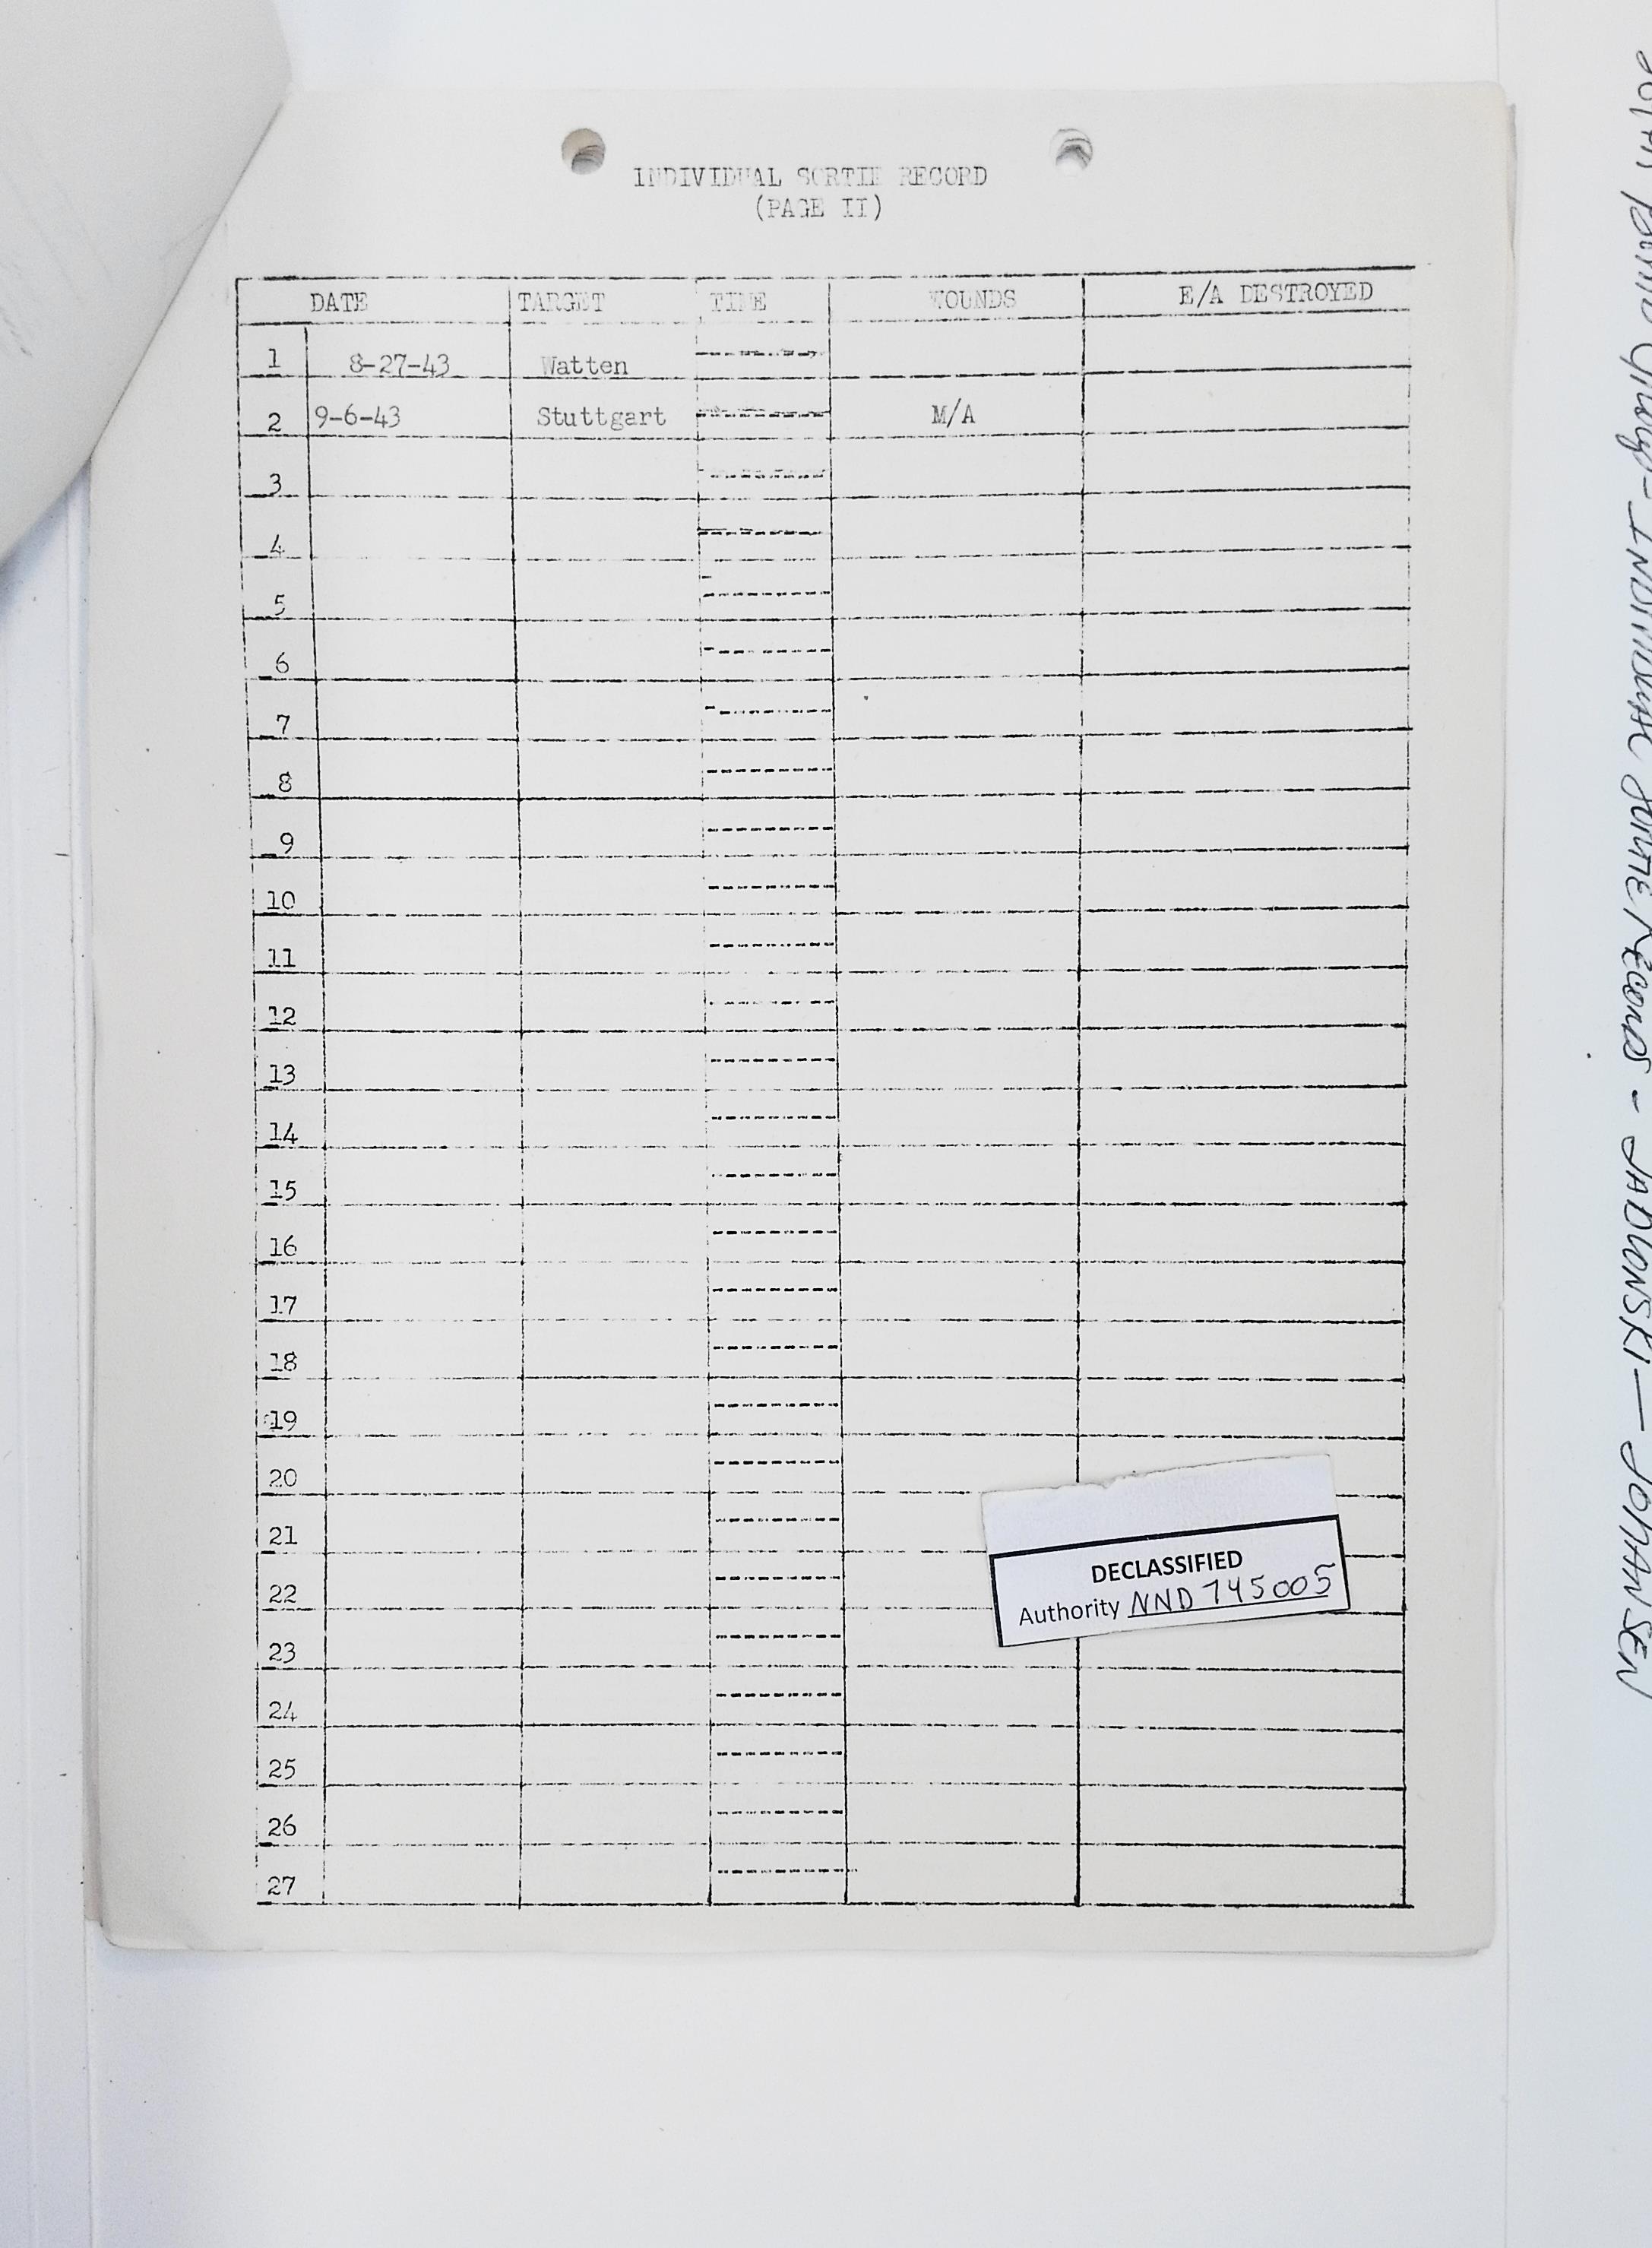 INDIVIDUAL SORTIE RECORD
(PAGE II)
DATE TARGET TIME WOUNDS E/A DESTROYED
1 8-27-43 Watten
2 9-6-43 Stuttgart M/A
3
4
5
6
7
8
9
10
11
12
13
14
15
16
17
18
19
20
21
22
23
24
25
26
27
DECLASSIFIED
Authority NND 745005
Bomb Group - INDIVIDUAL SORTIE RECORDS - JADWNSKI — JOHANSEN